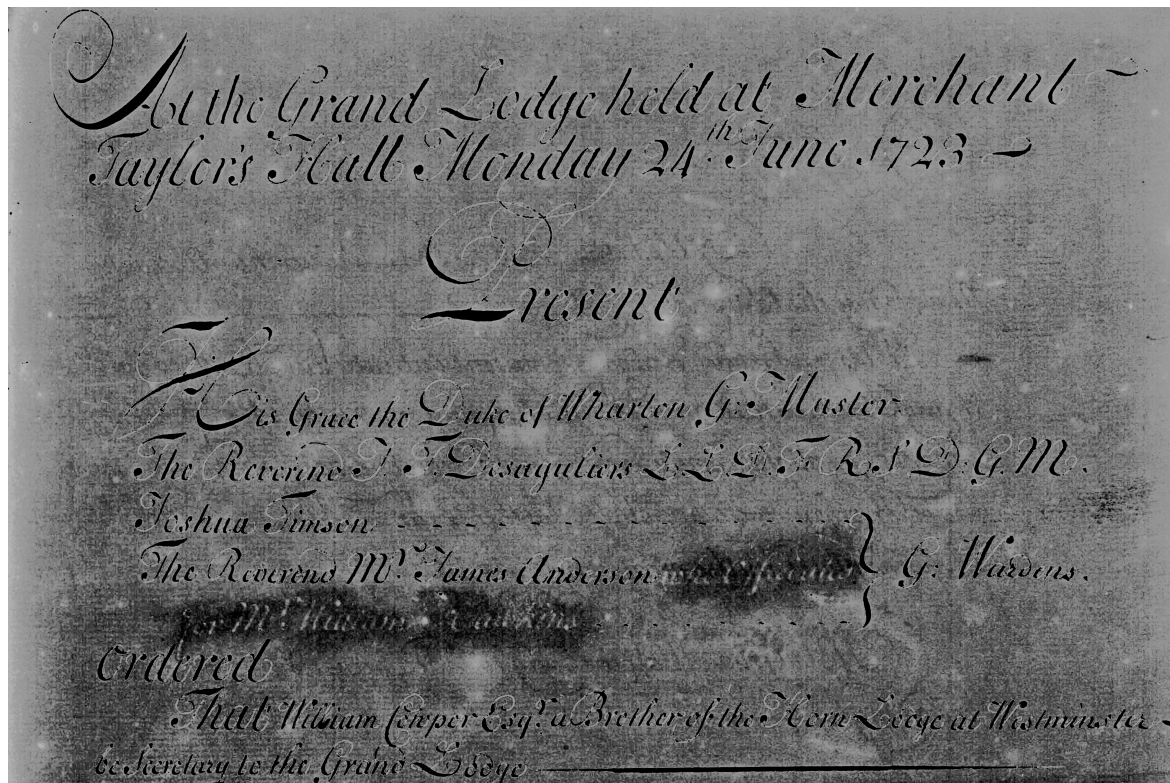 At the Grand Lodge held at Merchant
Taylor's Hall Monday 24th June 1723
Present
His Grace the Duke of Wharton G: Master.
The Reverend J. T. Desaguliers L L D. F R S D. G. M.
Joshua Timson
The Reverend Mr. James Anderson who officiated } G: Wardens.
for Mr. William Hawkins
Ordered
That William Cowper Esqr. a Brother of the Horn Lodge at Westminster
be Secretary to the Grand Lodge